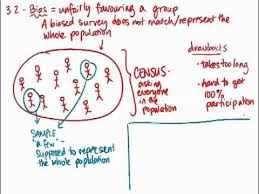 3.2 - Bias = unfairly favouring a group
A biased survey does not match/represent the
whole population
drawbacks
CENSUS-
asking
everyone
in the
population
→ takes too long
→ hard to get
100%
participation
SAMPLE
"a few" -
supposed to represent
the whole population